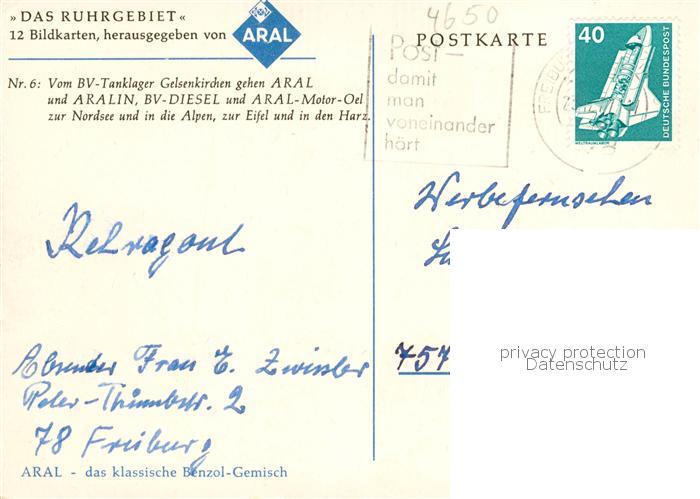 »DAS RUHRGEBIET«
12 Bildkarten, herausgegeben von
ARAL
Nr. 6: Vom BV-Tanklager Gelsenkirchen gehen ARAL
und ARALIN, BV-DIESEL und ARAL-Motor-Oel
zur Nordsee und in die Alpen, zur Eifel und in den Harz.
4650
POSTKARTE
POST –
damit
man
voneinander
hört
40
DEUTSCHE BUNDESPOST
WELTRAUMLABOR
Werbefernsehen
Rehragout
757
privacy protection
Datenschutz
Absender Frau E. Zwissler
Peter-Thumbstr. 2
78 Freiburg
ARAL - das klassische Benzol-Gemisch